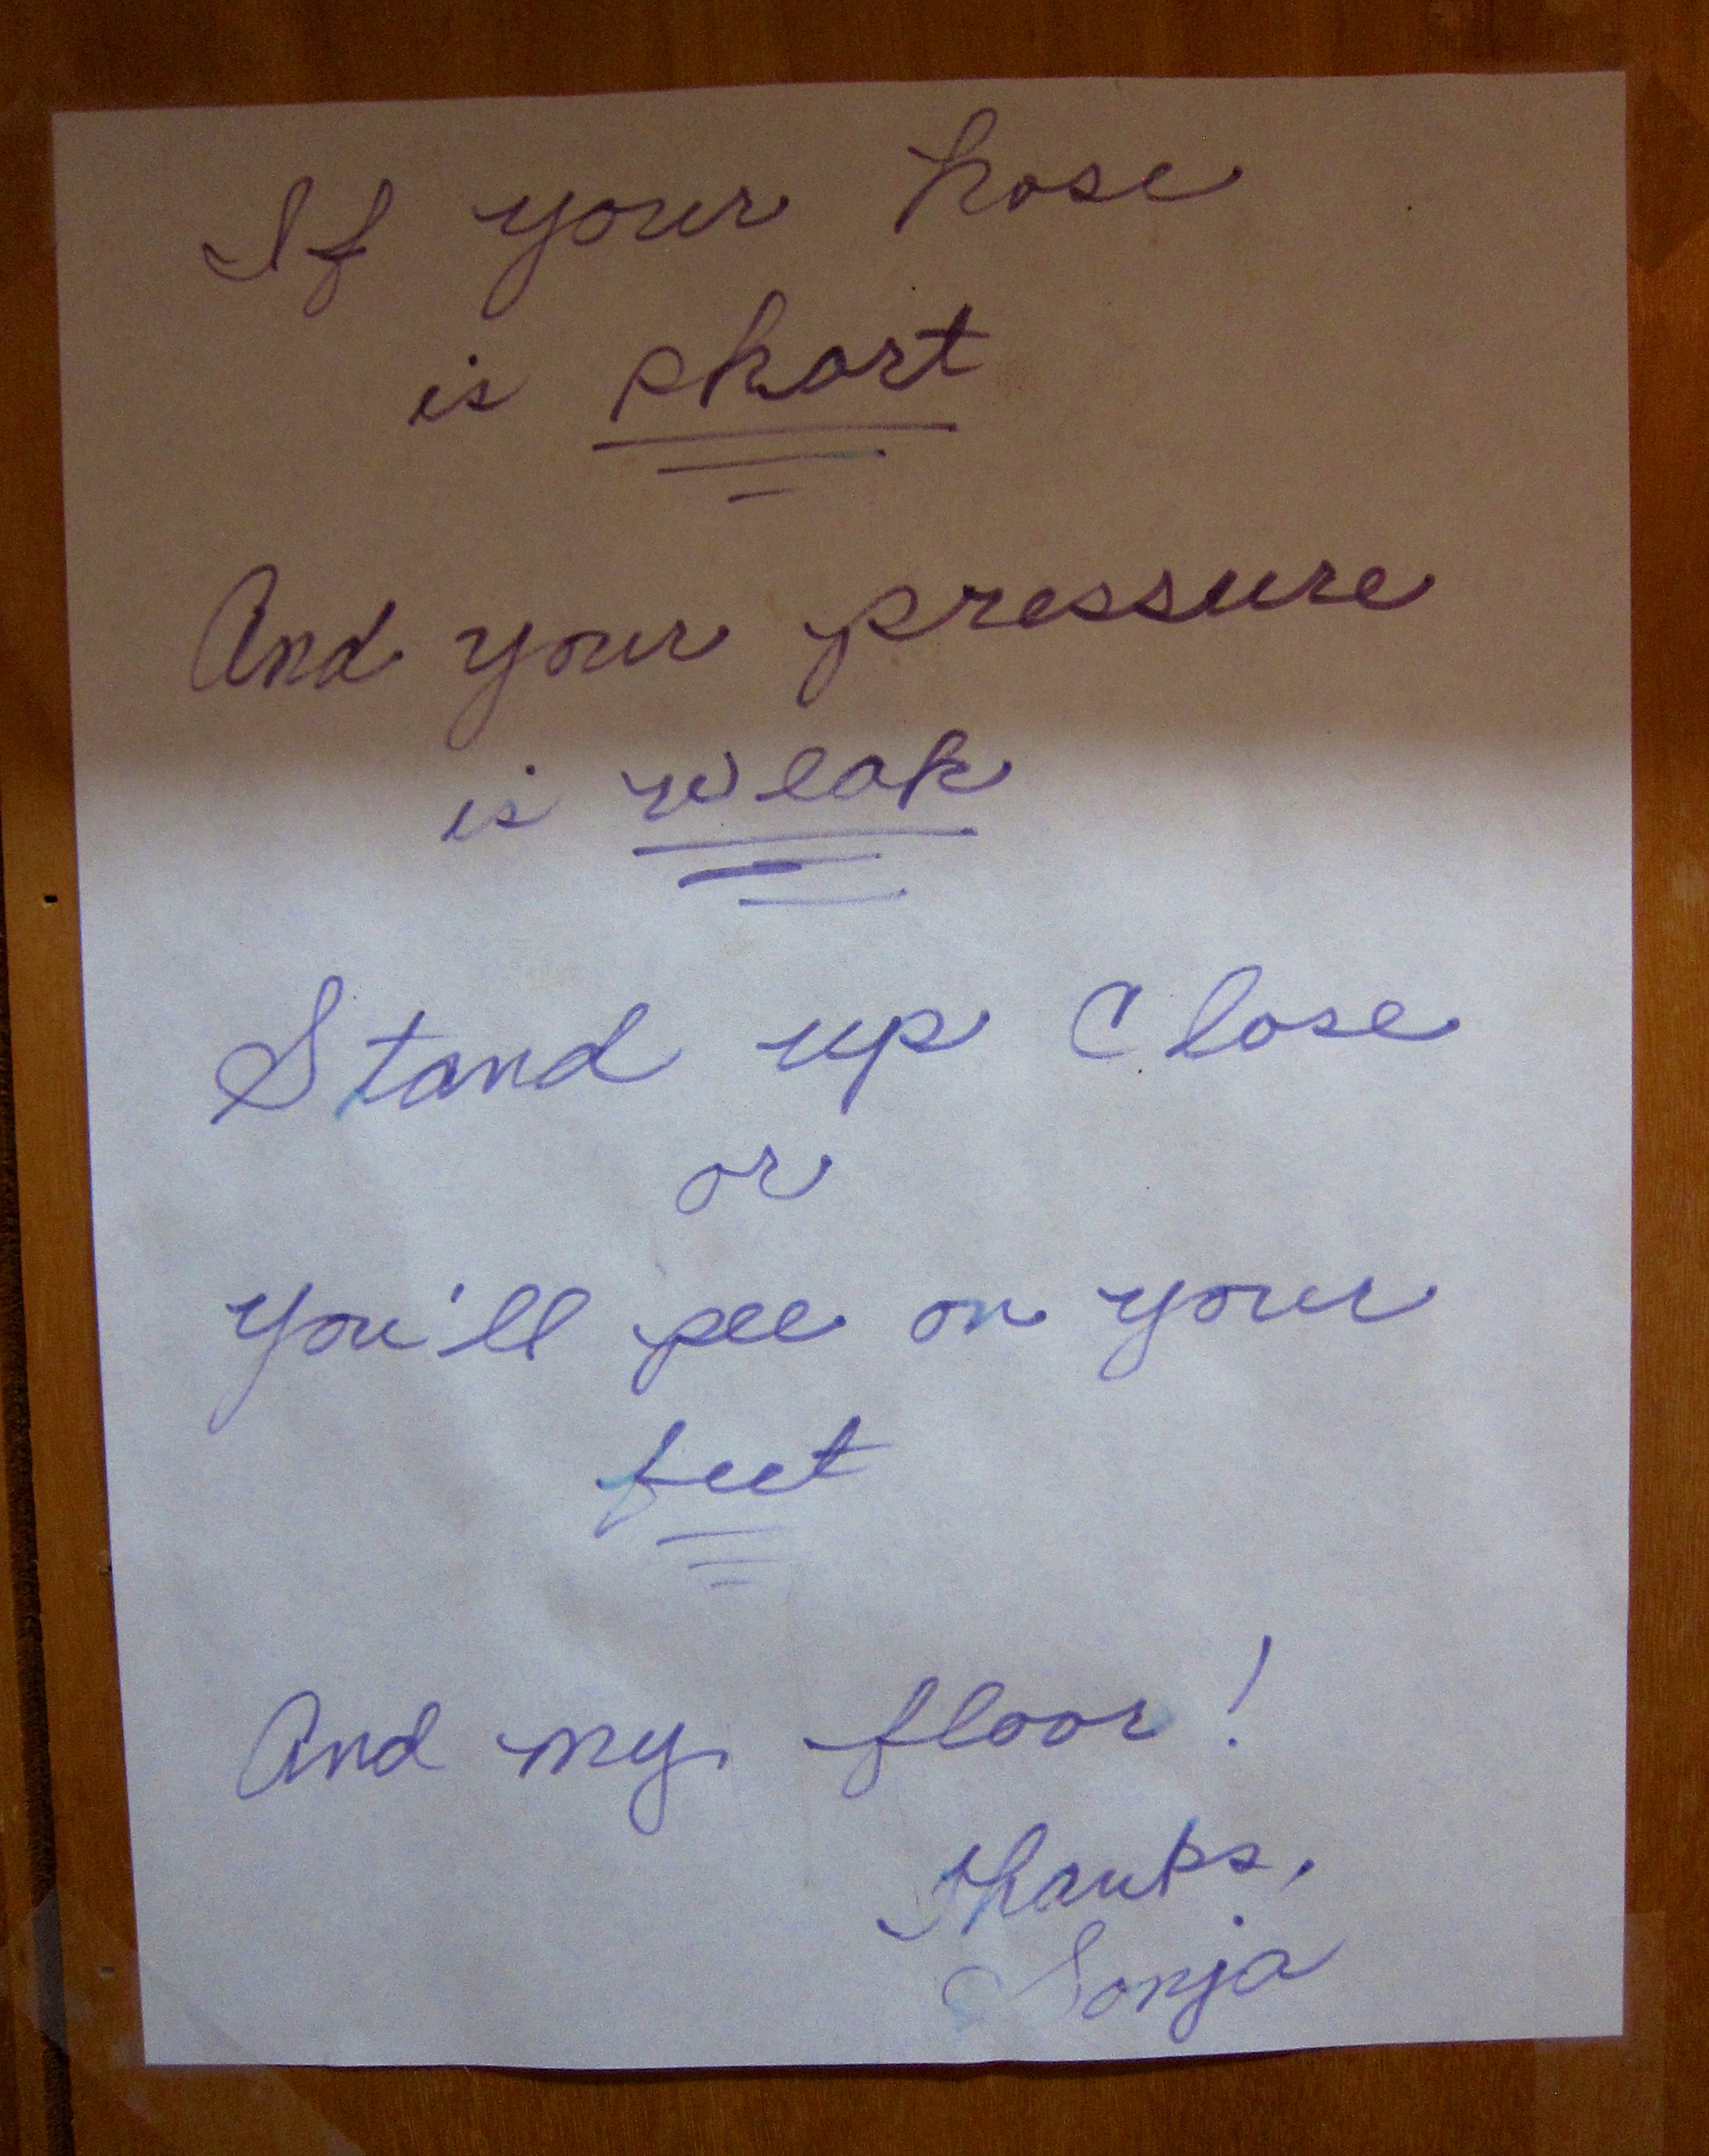 If your hose
is short
And your pressure
is weak
Stand up Close
or
You'll pee on your
feet
And my floor!
Thanks,
Sonja